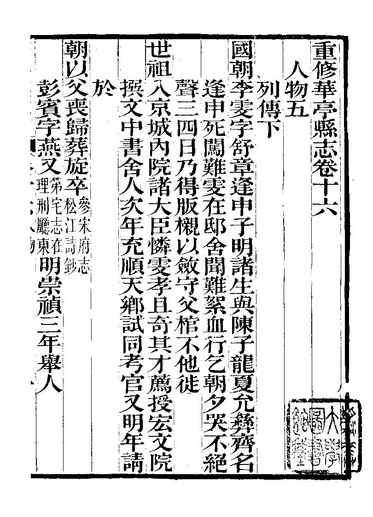 重修華亭縣志卷十六
人物五
列傳下
國朝李雯字舒章逢申子明諸生與陳子龍夏允彝齊名
逢申死闖難雯在邸舍聞難絮血行乞朝夕哭不絕
聲三四日乃得版櫬以斂守父棺不他徙
世祖入京城內院諸大臣憐雯孝且奇其才薦授宏文院
撰文中書舍人次年充順天鄉試同考官又明年請
於
朝以父喪歸葬旋卒參宋府志松江詩鈔
彭賓字燕又第宅志在理刑廳東明崇禎三年舉人
大學圖書